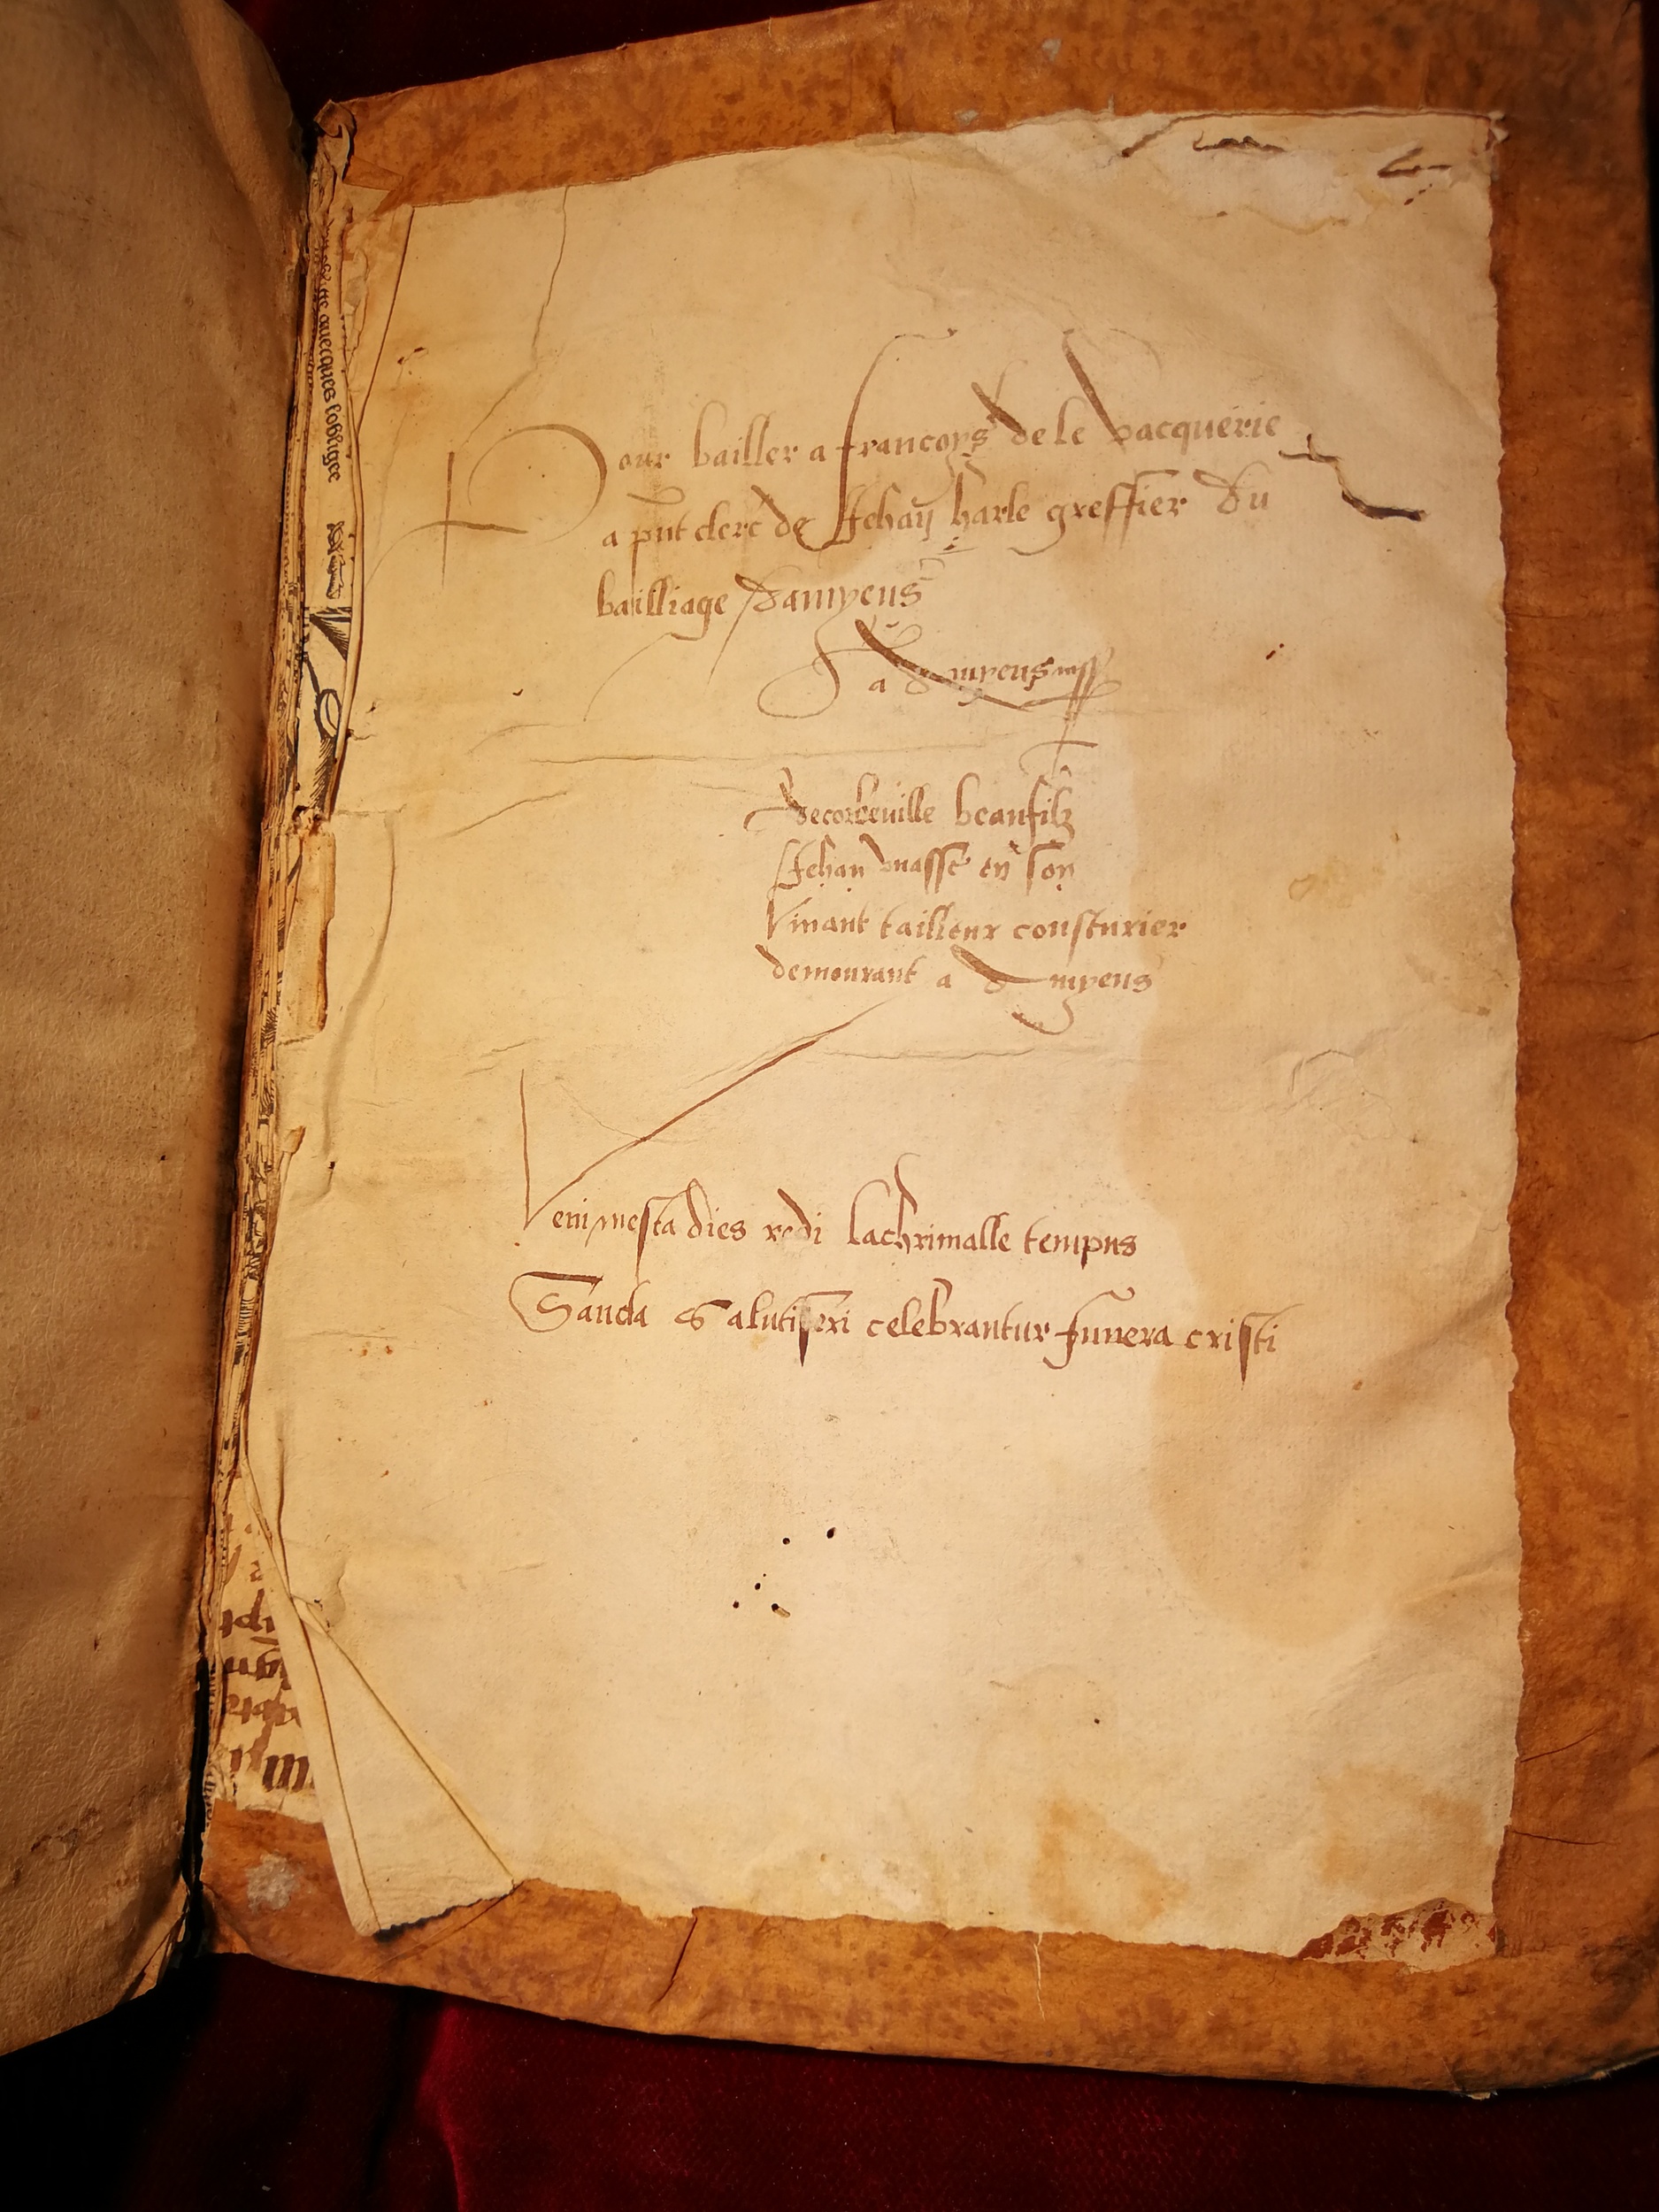 Pour bailler a francoys de le vacquerie
a pnt clerc de Jehan harle greffier du
bailliage damyens
a amyens
decorbeuille beaufilz
Jehan masse en son
viuant tailleur cousturier
demourant a amyens
Veni mesta dies redi lachrimalle tempus
Sancta Salutiferi celebrantur funera cristi
auecques lobligee